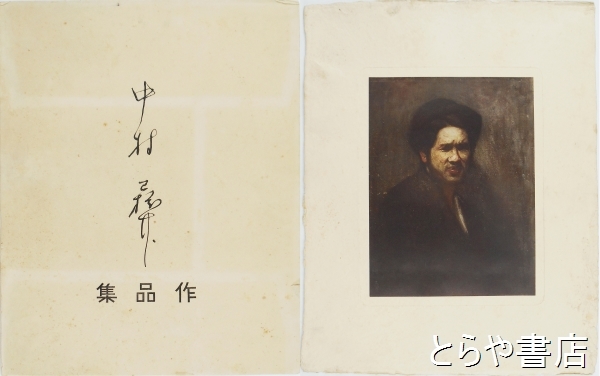 中村彝
集品作
とらや書店